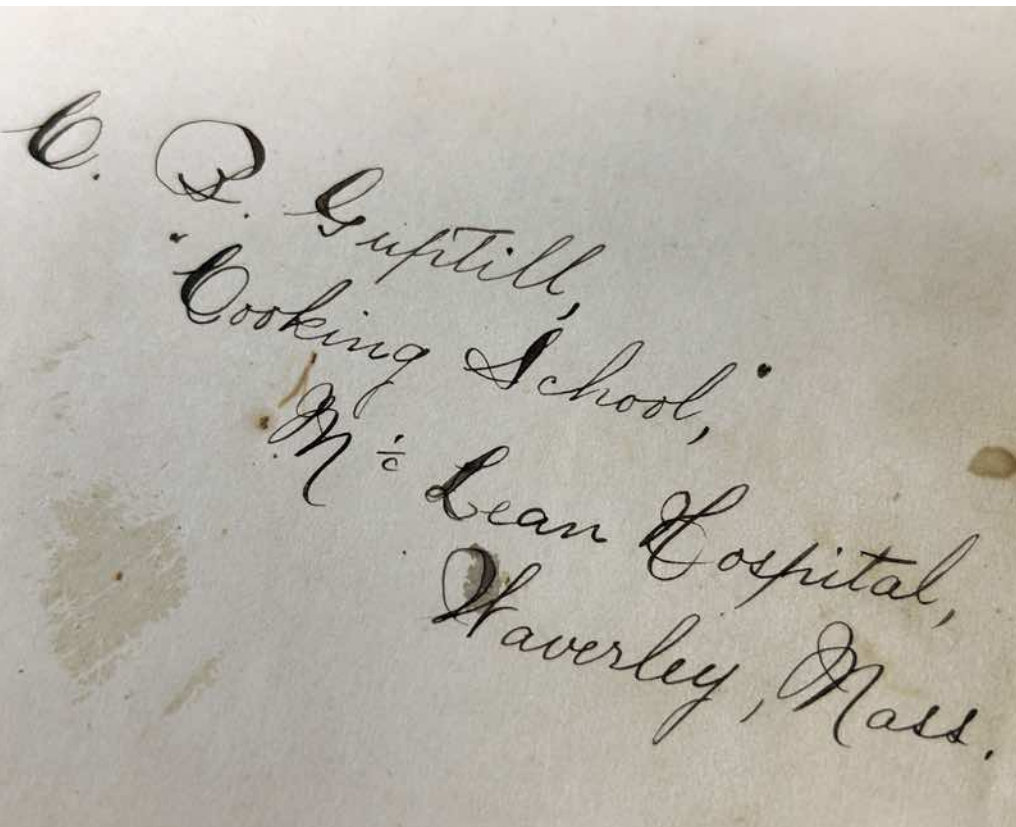 C. P. Guptill,
"Cooking School,"
Mc Lean Hospital,
Waverley, Mass.